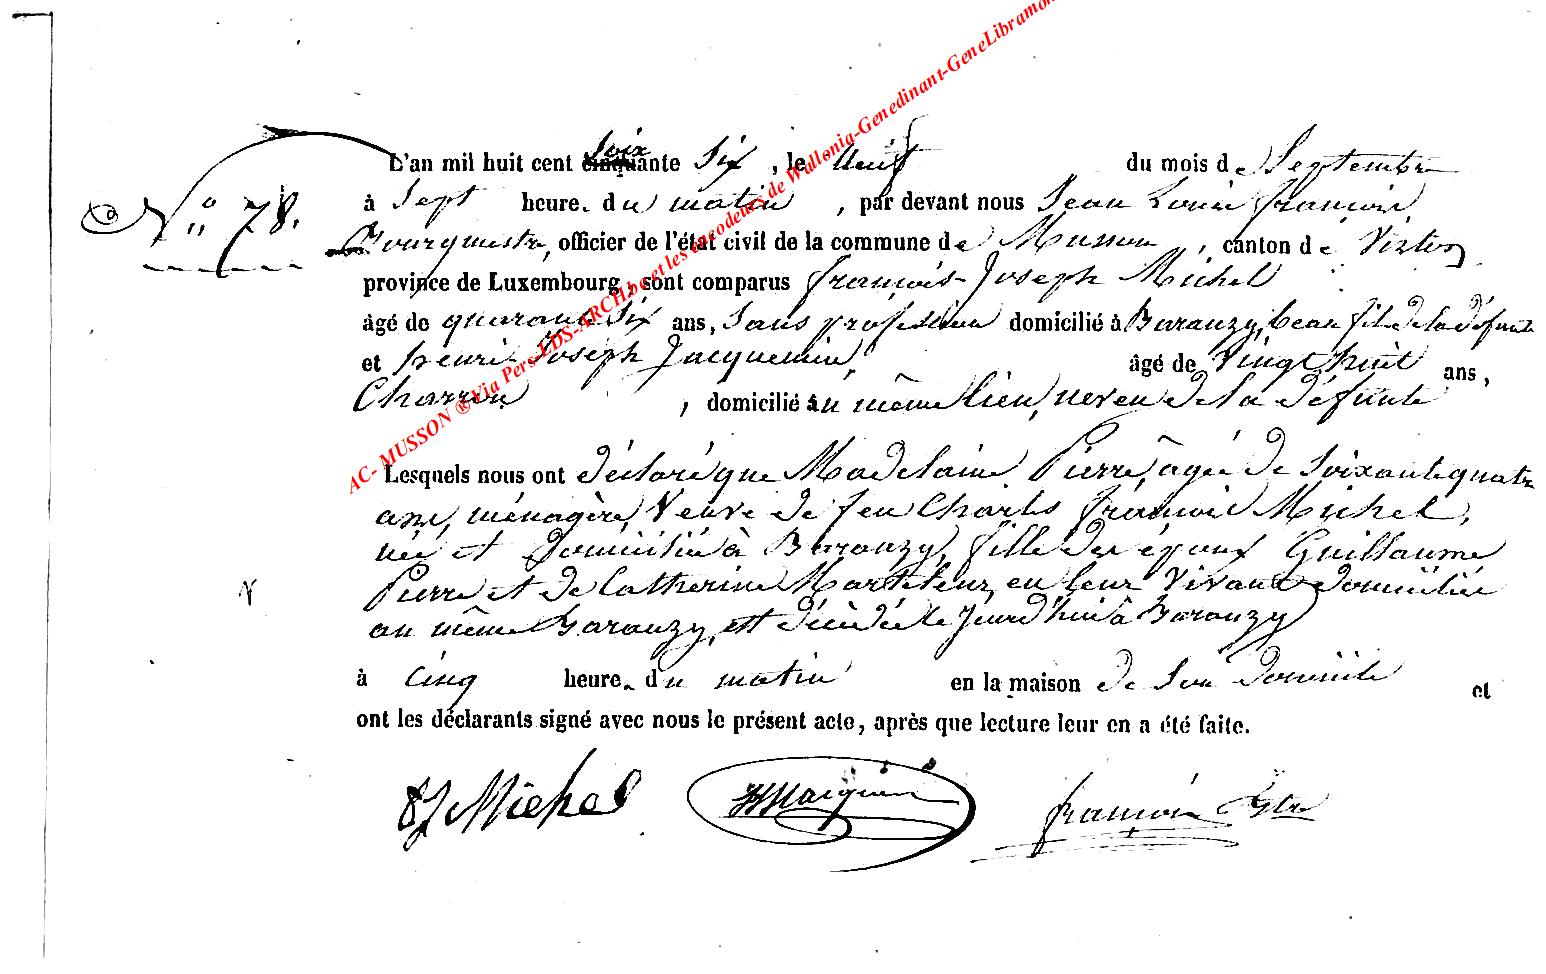 L'an mil huit cent soixante Six, le Neuf du mois de Septembre
N° 78.
à Sept heures du matin, par devant nous Jean Louis françois
officier de l'état civil de la commune de Musson, canton de Virton
province de Luxembourg, sont comparus françois-Joseph Michel
âgé de quarante Six ans, Sans profession domicilié à Baranzy, beau fils de la défunte
et henri-Joseph Jacquemin, âgé de Vingt huit ans,
Charron, domicilié au même lieu, neveu de la défunte
Lesquels nous ont déclaré que Madelaine Pierre, agée de Soixante quatre
ans, ménagère, Veuve de feu Charles françois Michel,
née et domiciliée à Baranzy, fille des époux Guillaume
Pierre et de Catherine en leur Vivant domiciliés
au même Baranzy, est décédée le Jourd'hui à Baranzy
à Cinq heures du matin en la maison de Son domicile et
ont les déclarants signé avec nous le présent acte, après que lecture leur en a été faite.
Michel françois
AC- MUSSON ® Via Pers-LDS-ARCH.be et les encodeurs de Wallonia-Genedinant-GeneLibramon